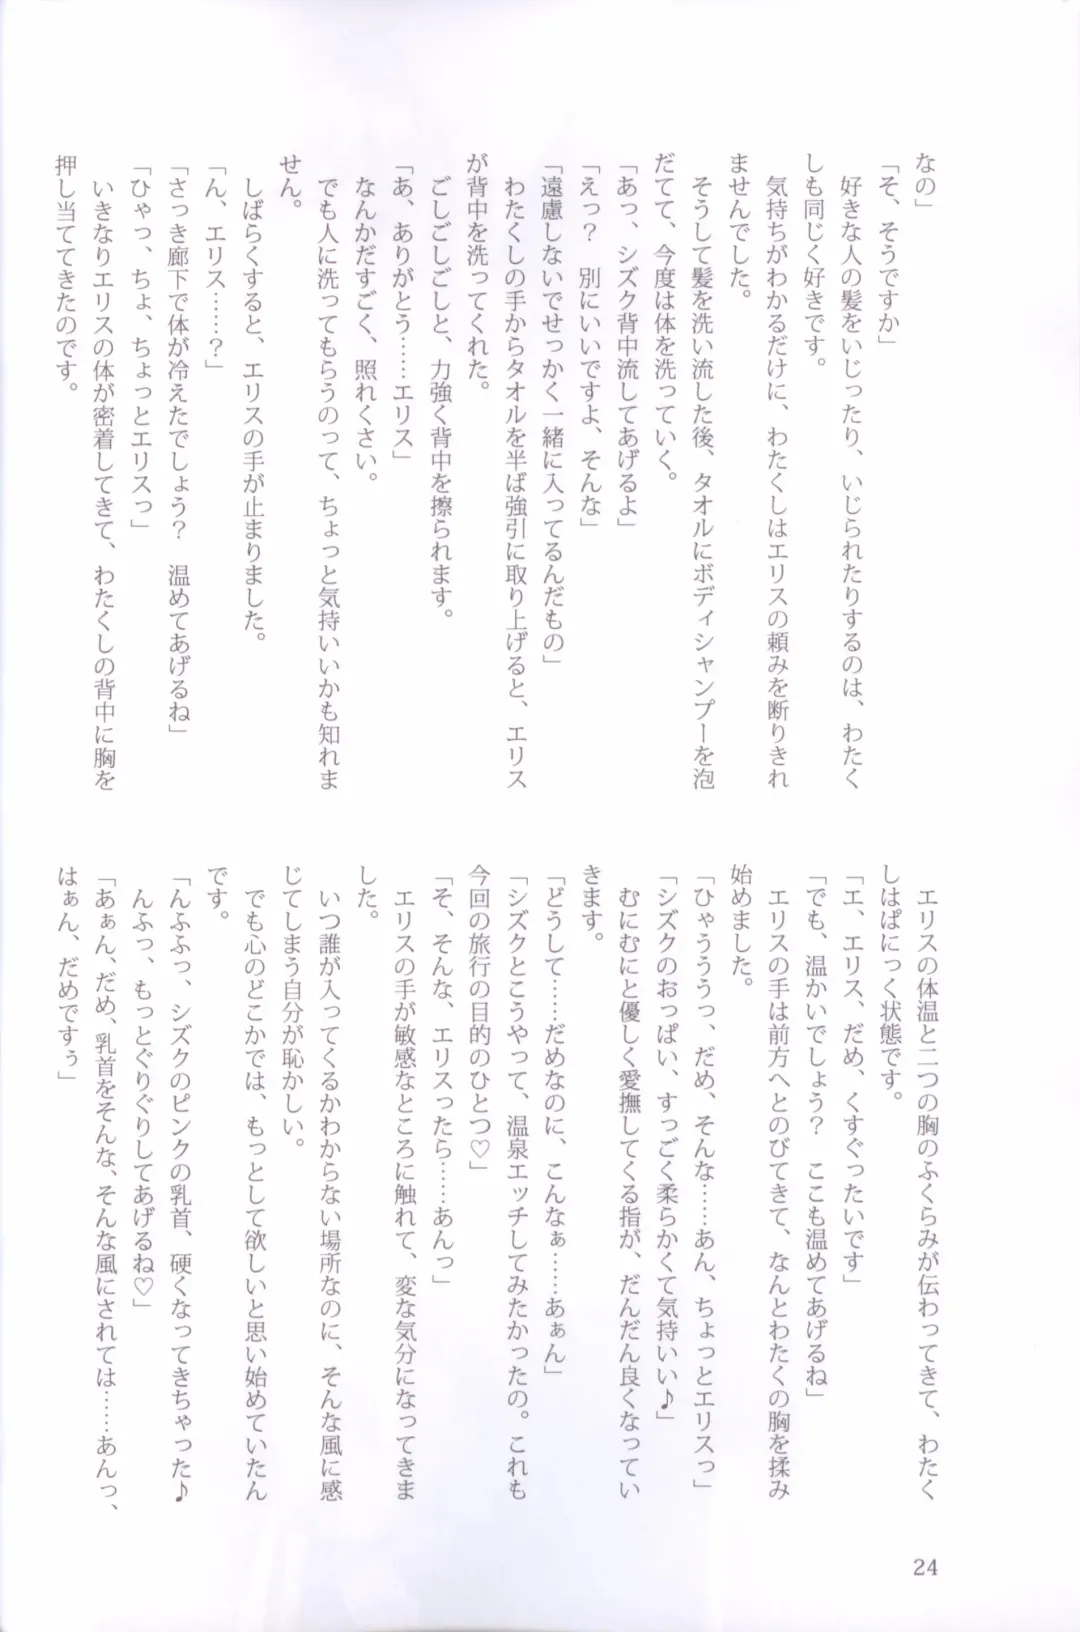 なの」
「そ、そうですか」
好きな人の髪をいじったり、いじられたりするのは、わたく
しも同じく好きです。
気持ちがわかるだけに、わたくしはエリスの頼みを断りきれ
ませんでした。
そうして髪を洗い流した後、タオルにボディシャンプーを泡
だてて、今度は体を洗っていく。
「あっ、シズク背中流してあげるよ」
「えっ？　別にいいですよ、そんな」
「遠慮しないでせっかく一緒に入ってるんだもの」
わたくしの手からタオルを半ば強引に取り上げると、エリス
が背中を洗ってくれた。
ごしごしごしと、力強く背中を擦られます。
「あ、ありがとう……エリス」
なんかだすごく、照れくさい。
でも人に洗ってもらうのって、ちょっと気持いいかも知れま
せん。
しばらくすると、エリスの手が止まりました。
「ん、エリス……？」
「さっき廊下で体が冷えたでしょう？　温めてあげるね」
「ひゃっ、ちょ、ちょっとエリスっ」
いきなりエリスの体が密着してきて、わたくしの背中に胸を
押し当ててきたのです。
エリスの体温と二つの胸のふくらみが伝わってきて、わたく
しはぱにっく状態です。
「エ、エリス、だめ、くすぐったいです」
「でも、温かいでしょう？　ここも温めてあげるね」
エリスの手は前方へとのびてきて、なんとわたくの胸を揉み
始めました。
「ひゃうううっ、だめ、そんな……あん、ちょっとエリスっ」
「シズクのおっぱい、すっごく柔らかくて気持いい♪」
むにむにと優しく愛撫してくる指が、だんだん良くなってい
きます。
「どうして……だめなのに、こんなぁ……あぁん」
「シズクとこうやって、温泉エッチしてみたかったの。これも
今回の旅行の目的のひとつ♡」
「そ、そんな、エリスったら……あんっ」
エリスの手が敏感なところに触れて、変な気分になってきま
した。
いつ誰が入ってくるかわからない場所なのに、そんな風に感
じてしまう自分が恥かしい。
でも心のどこかでは、もっとして欲しいと思い始めていたん
です。
「んふふっ、シズクのピンクの乳首、硬くなってきちゃった♪
んふっ、もっとぐりぐりしてあげるね♡」
「あぁん、だめ、乳首をそんな、そんな風にされては……あんっ、
はぁん、だめですぅ」
24